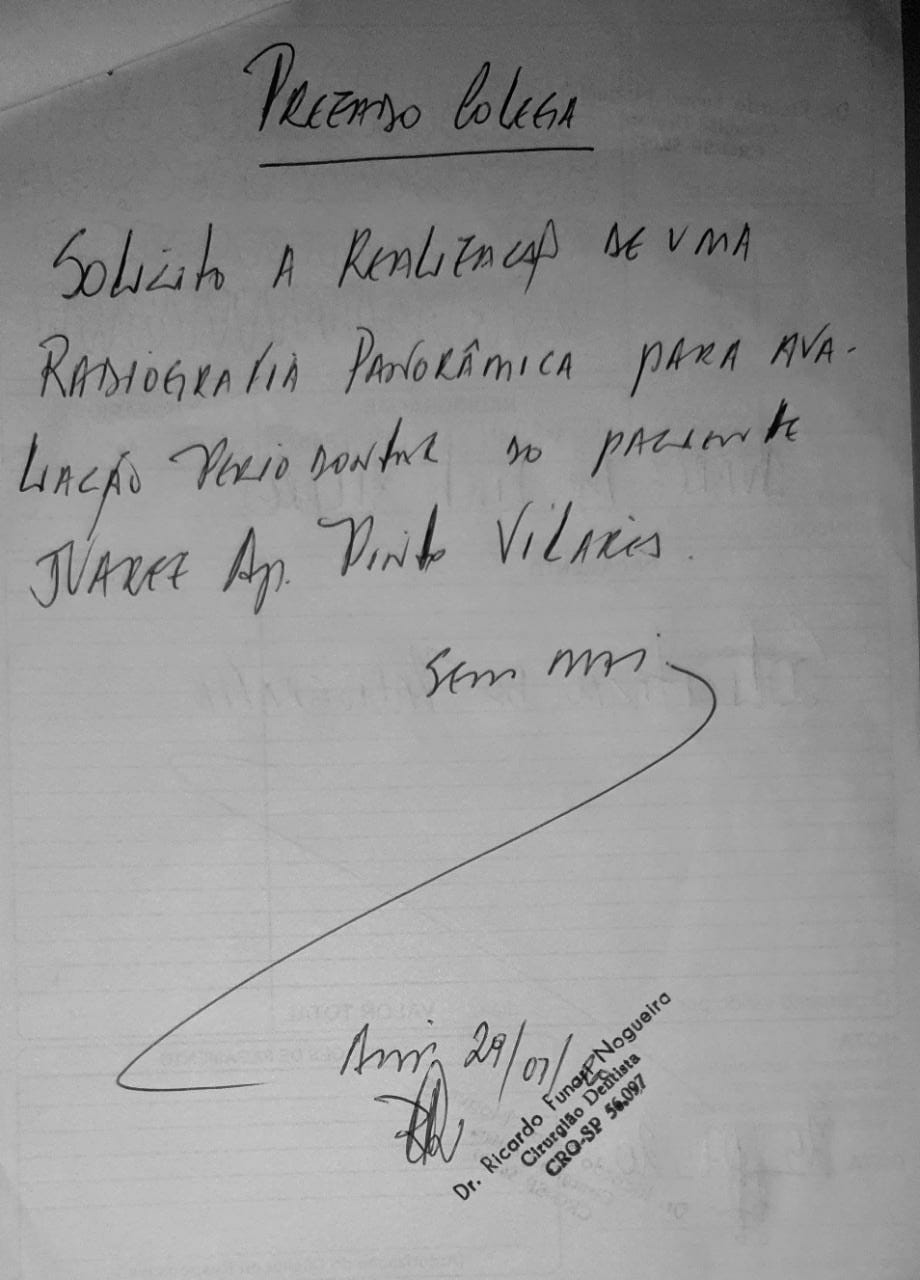 PREZADO COLEGA
SOLICITO A REALIZAÇÃO DE UMA
RADIOGRAFIA PANORÂMICA PARA AVA-
LIAÇÃO PERIODONTAL DO PACIENTE
JUAREZ Ap. PINTO VILARES.
SEM MAIS
29/07/
Dr. Ricardo Funari Nogueira
Cirurgião Dentista
CRO-SP 56.097
VALOR TOTAL